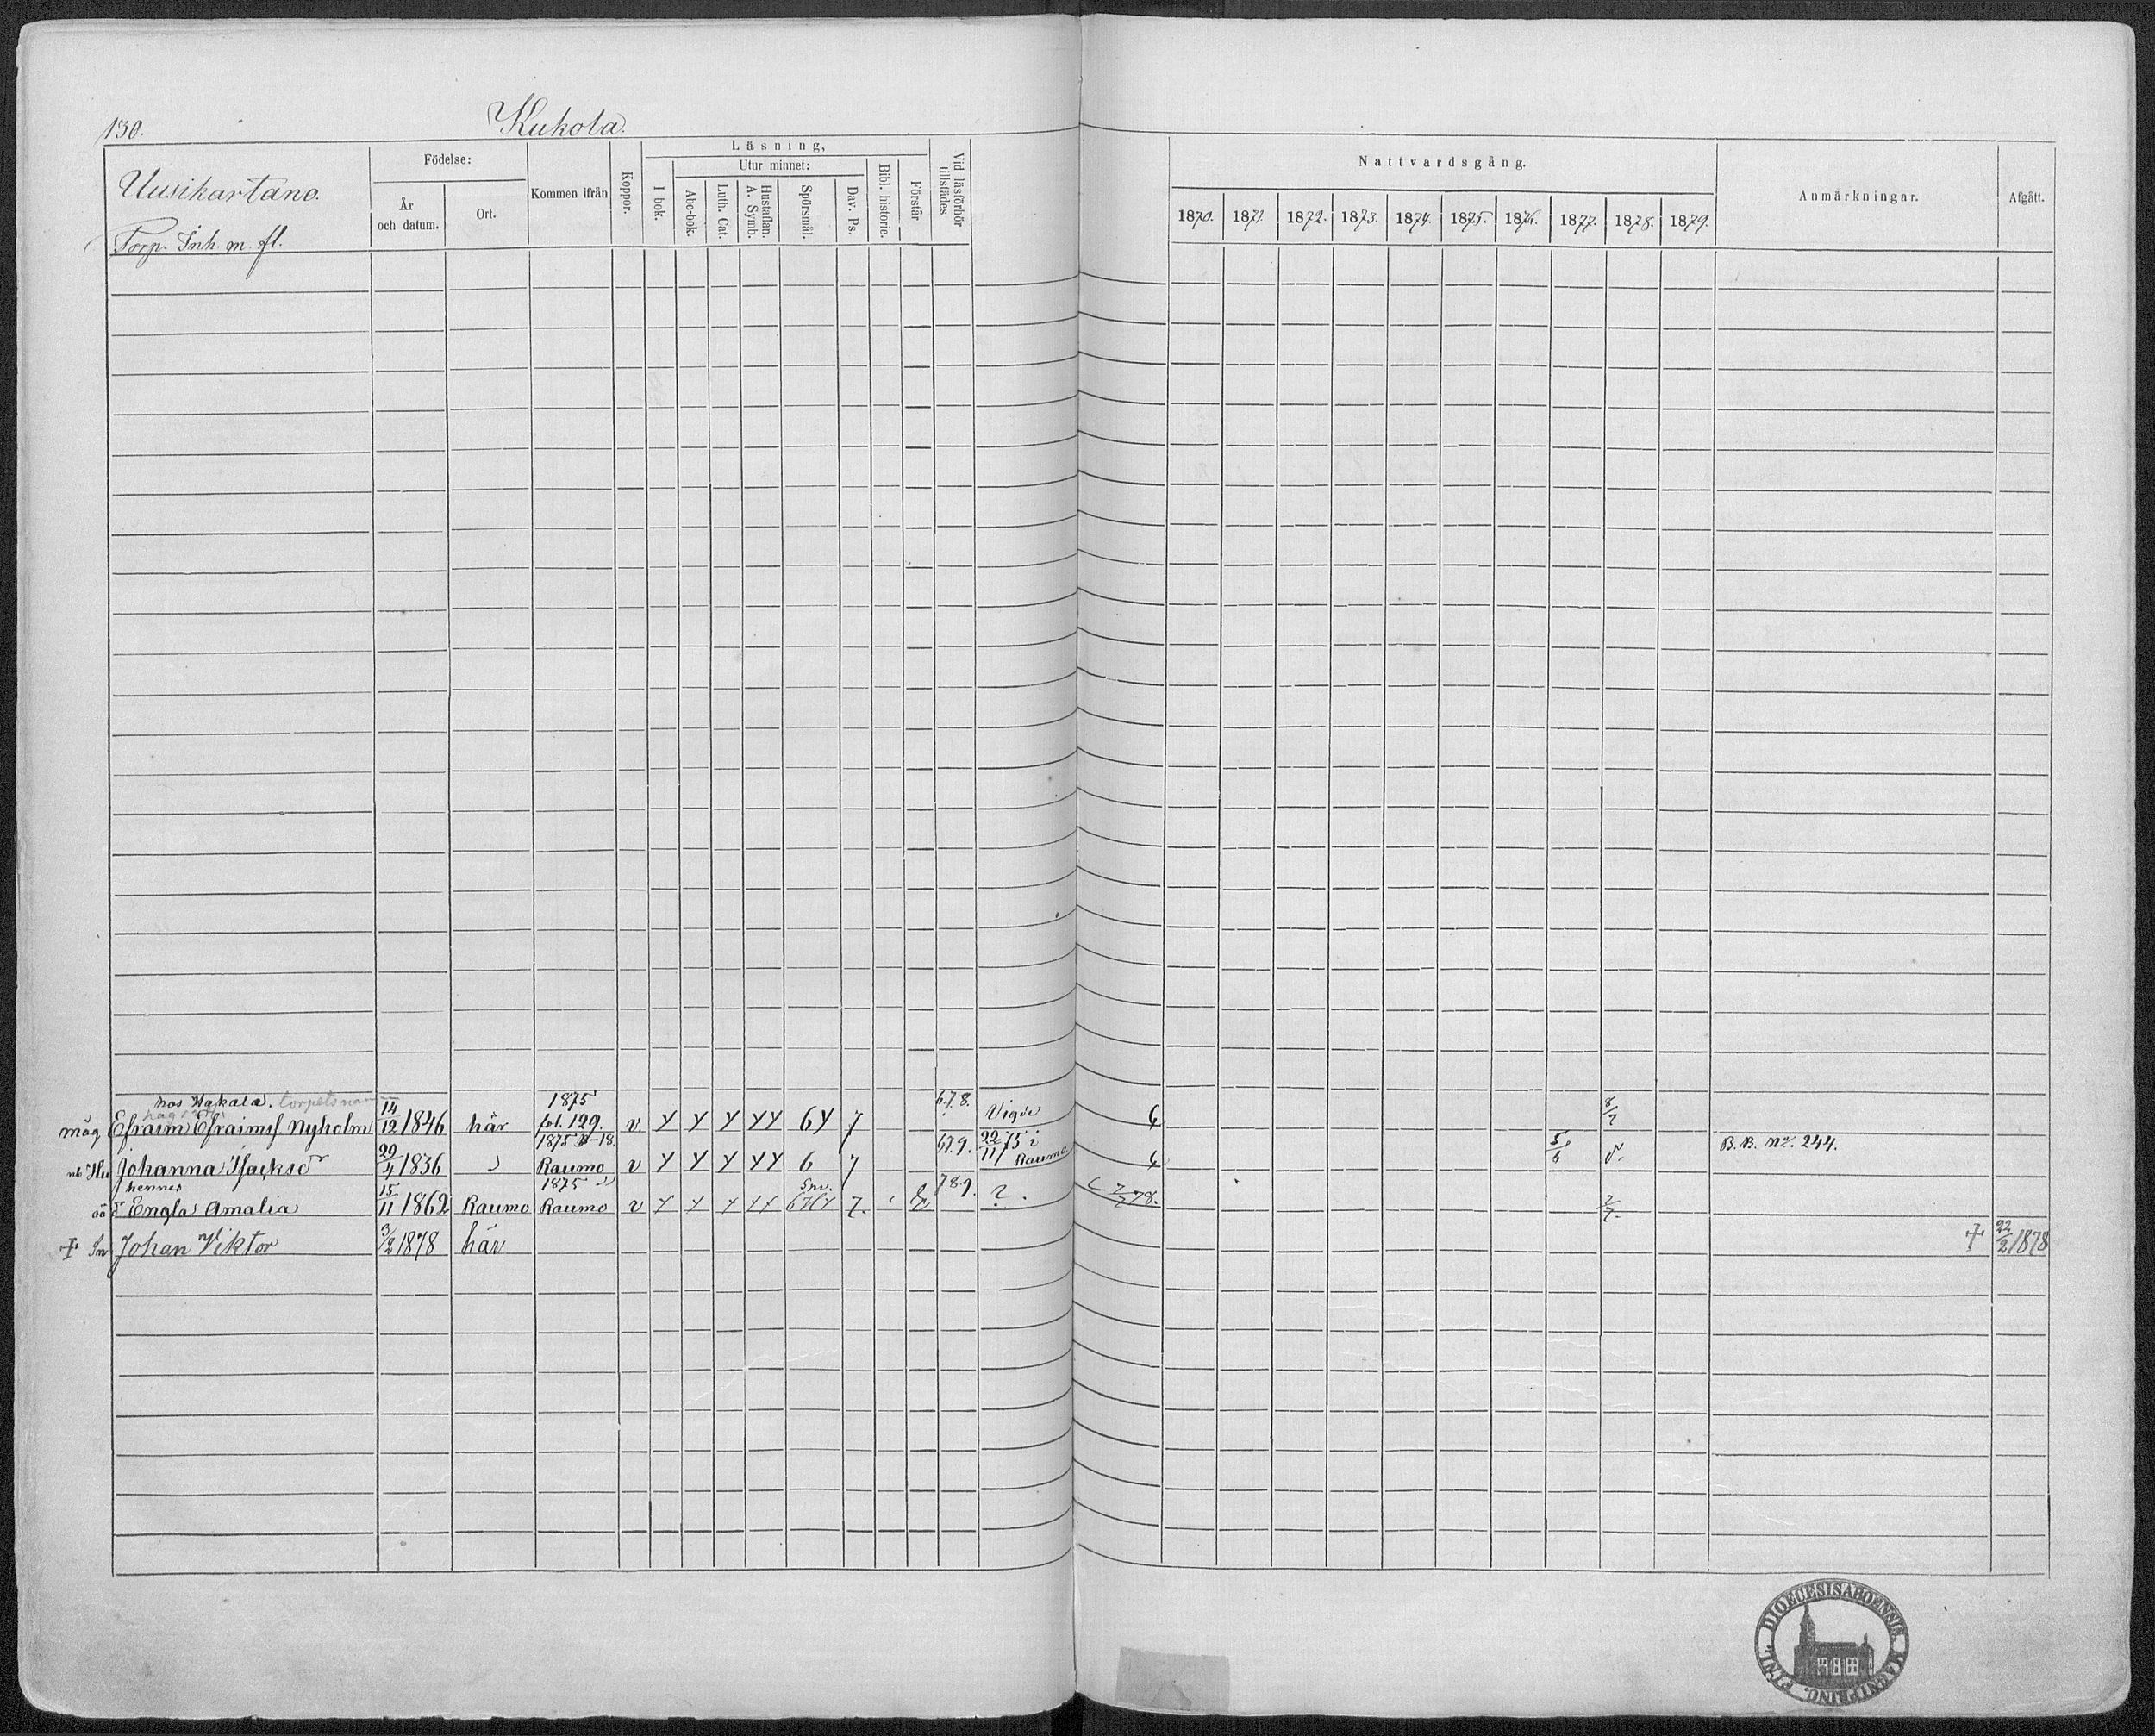 130.
Kukola.
Uusikartano.
Torp. Inh. m. fl.
Födelse:
År och datum.
Ort.
Kommen ifrån
Koppor.
Läsning,
I bok.
Utur minnet:
Abc-bok.
Luth. Cat.
Hustaflan. A. Symb.
Spörsmål.
Dav. Ps.
Bibl. historie.
Förstår
Vid läsförhör tillstädes
Nattvardsgång.
1870. 1871. 1872. 1873. 1874. 1875. 1876. 1877. 1878. 1879.
Anmärkningar.
Afgått.
hos Hakala. torpets
1875
måg Efraim Efraimsf Nyholm 14/12 1846 här fol. 129. v Y Y Y YY 6Y 7 6.7.8. Vigde 6 8/7
1875 18.
Hu Johanna Isacksdr 29/4 1836 Raumo v Y Y Y YY 6 7 6.7.9. 22/11 75 i Raumo 6 5/6 B. B. No. 244.
hennes 1875
oä dr Engla Amalia 15/11 1862 Raumo Raumo v 7.8.9. ? 78. 2/7.
+ Sn Johan Viktor 3/2 1878 här + 22/2 1878
FINL. DIOECESIS ABOENSIS. MAGNI PRINC.